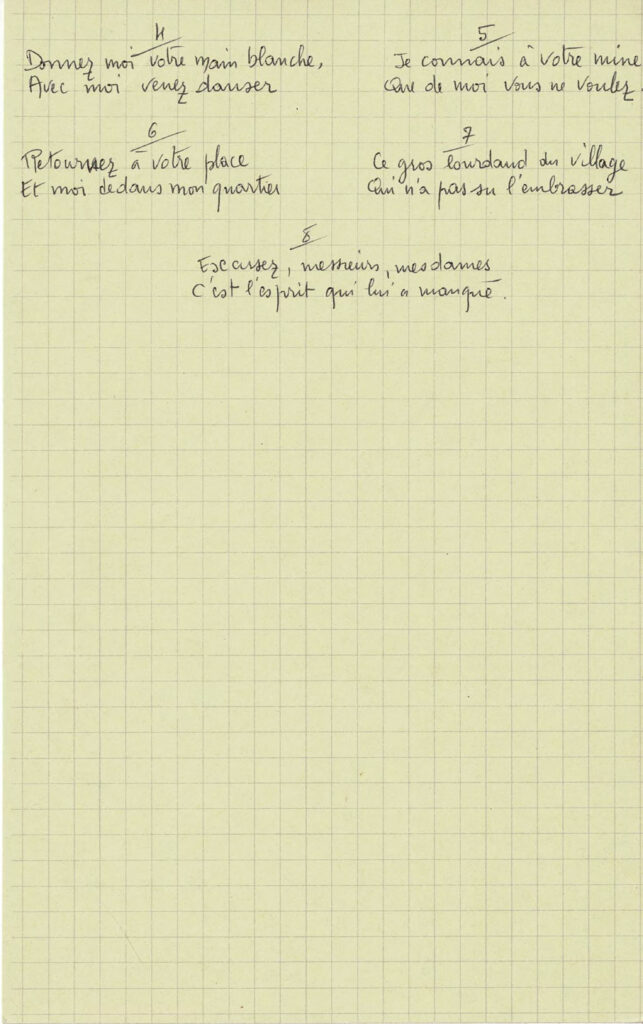 4
Donnez moi votre main blanche,
Avec moi venez danser
5
Je connais à votre mine
Que de moi vous ne voulez.
6
Retournez à votre place
Et moi dedans mon quartier
7
Ce gros lourdaud du village
Qui n'a pas su l'embrasser
8
Excusez, messieurs, mesdames
C'est l'esprit qui lui a manqué.